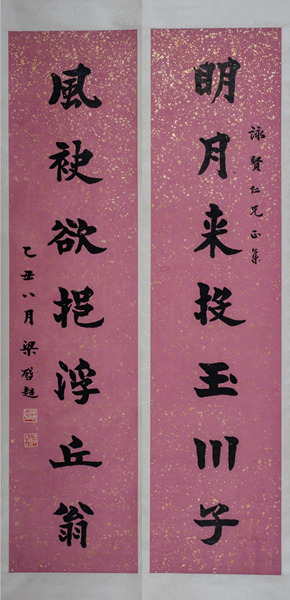 詠賢仁兄正
眀月来投玉川子
風袂欲挹浮丘翁
乙丑八月 梁啓超